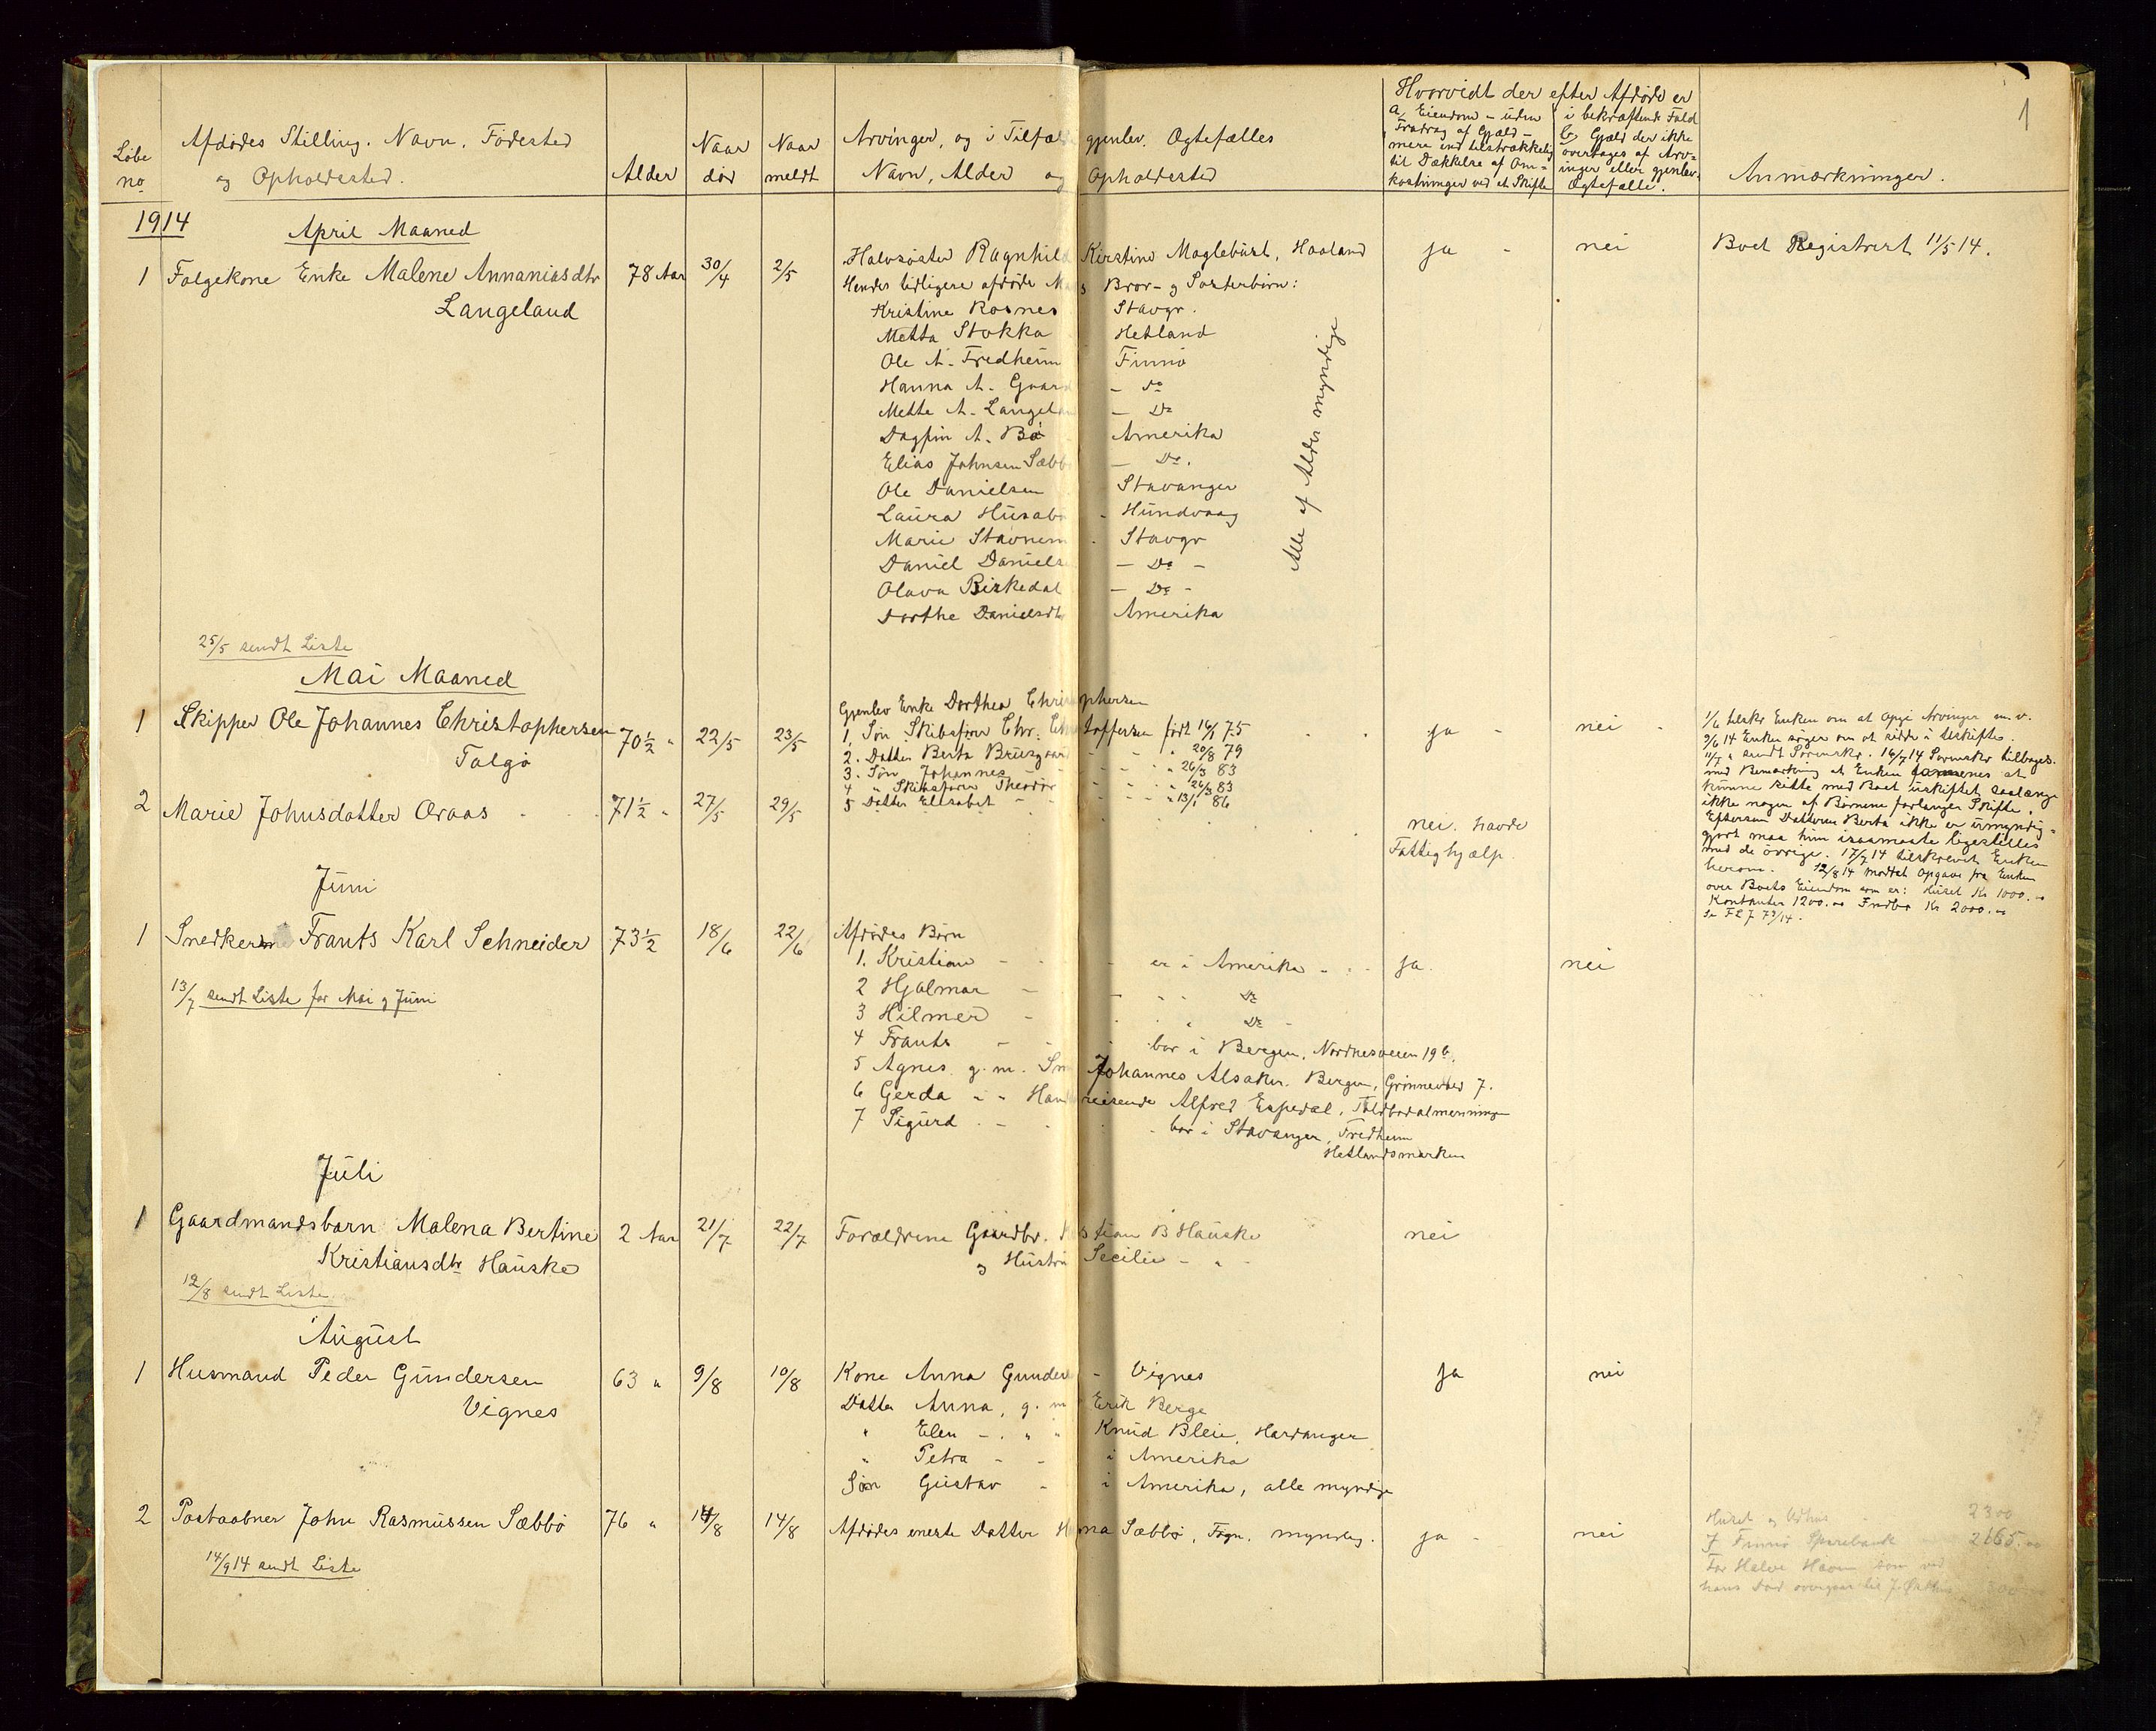 1
Løbe no
Afdødes Stilling. Navn. Fødested
og Opholdssted.
Alder
Naar død
Naar meldt
Arvinger, og i Tilfælde gjenlev. Ogtefælles
Navn, Alder og Opholdssted
Hvorvidt der efter Afdøde er
a, Eiendom - uden
Fradrag af Gjæld -
mere end tilstrækkelig
til Dækkelse af Om-
kostninger ved et Skifte
i bekræftende Fald
b, Gjæld der ikke
overtages af Arv-
inger eller gjenlev.
Ogtefælle.
Anmærkninger.
1914
April Maaned
1 Folgekone Enke Malene Annaniasdtr 78 Aar 30/4 2/5 Halvsøster Ragnhild Kirstine Maglebust, Haaland ja - nei Boet Registrert 11/5 14.
Langeland
Hendes tidligere afdøde Mands Bror- og Søsterbørn:
Kristine Rosnes Stavgr.
Metta Stokka Hetland
Ole A. Fredheim Finnø
Hanna A. Gaard - do
Mette A. Langeland - Do
Dagfin A. Bø Amerika
Elias Johnsen Sæbbø - Do.
Ole Danielsen Stavanger
Laura Husabø - Hundvaag
Marie Stavnem - Stavgr
Daniel Danielsen - Do -
Olava Birkedal - Do -
Dorthe Danielsdtr Amerika
Alle af Alder myndige
25/5 sendt Liste
Mai Maaned
1 Skipper Ole Johannes Christophersen 70½ " 22/5 23/5 ja - nei -
Talgø
Gjenlev Enke Dorthea Christophersen
1, Søn Skibsfører Chr. Christoffersen født 16/1 75
2. Datter Berta Brusgaard - - - " 20/8 79
3. Søn Johannes - - - - " 26/3 83
4 " Skibsfører Theodor - - - " 26/3 83
5 Datter Elisabet - - - - " 13/1 86
1/6 tilskr Enken om at opgi Arvinger m. v.
9/6 14 Enken søger om at sidde i uskifte.
11/7 " sendt Sorenskr. 16/7 14 Sorenskr tilbages.
med Bemærkning at Enken formenes at
kunne sidde med Boet uskiftet saalænge
ikke nogen af Børnene forlanger Skifte.
Eftersom Datteren Berta ikke er umyndig-
gjort maa hun isaamaate ligestilles
med de øvrige. 17/7 14 tilskrevet Enken
herom. 12/8 14 modtat Opgave fra Enken
over Boets Eiendom som er: Huset Kr 1000.oo
Kontanter 1200.oo Indbo Kr 2000.oo
2 Marie Johnsdatter Oraas 71½ " 27/5 29/5 nei. havde
Fattighjælp.
Juni
1 Snedker Frants Karl Schneider 73½ 18/6 22/6 Afdødes Børn
1. Kristian - er i Amerika - - ja. nei
2 Hjalmar - - - Do
3 Hilmer - - - Do -
4 Frants - - bor i Bergen, Nordnesveien 19b.
5 Agnes g. m. Johannes Alsaker. Bergen, 7.
6 Gerda " " Handelsreisende Alfred Espedal, Toldbodalmenningen
7 Sigurd - - bor i Stavanger, Fredheim
Hetlandsmarken
13/7 sendt Liste for Mai og Juni
Juli
1 Gaardmandsbarn Malena Bertine 2 Aar 21/7 22/7 Forældrene Gaardbr. Kristian B Hauske nei
Kristiansdtr Hauske og Hustru Secilie - " -
12/8 sendt Liste
August
1 Husmand Peder Gundersen 63 " 9/8 10/8 Kone Anna Gundersen - Vignes ja nei
Vignes
Datter Anna, g. m Erik Berge
" Elen - . " " Knud Bleie, Hardanger
" Petra - - i Amerika
Søn Gustav - i Amerika, alle myndige
2 Postaabner John Rasmussen Sæbbø 76 " 14/8 14/8 Afdødes eneste Datter Sæbbø, Fogn. myndig. ja - nei
Huset og Udhus 2300
I Finnø Sparebank 2165.oo
For Halve Havn som ved
14/9 14 sendt Liste